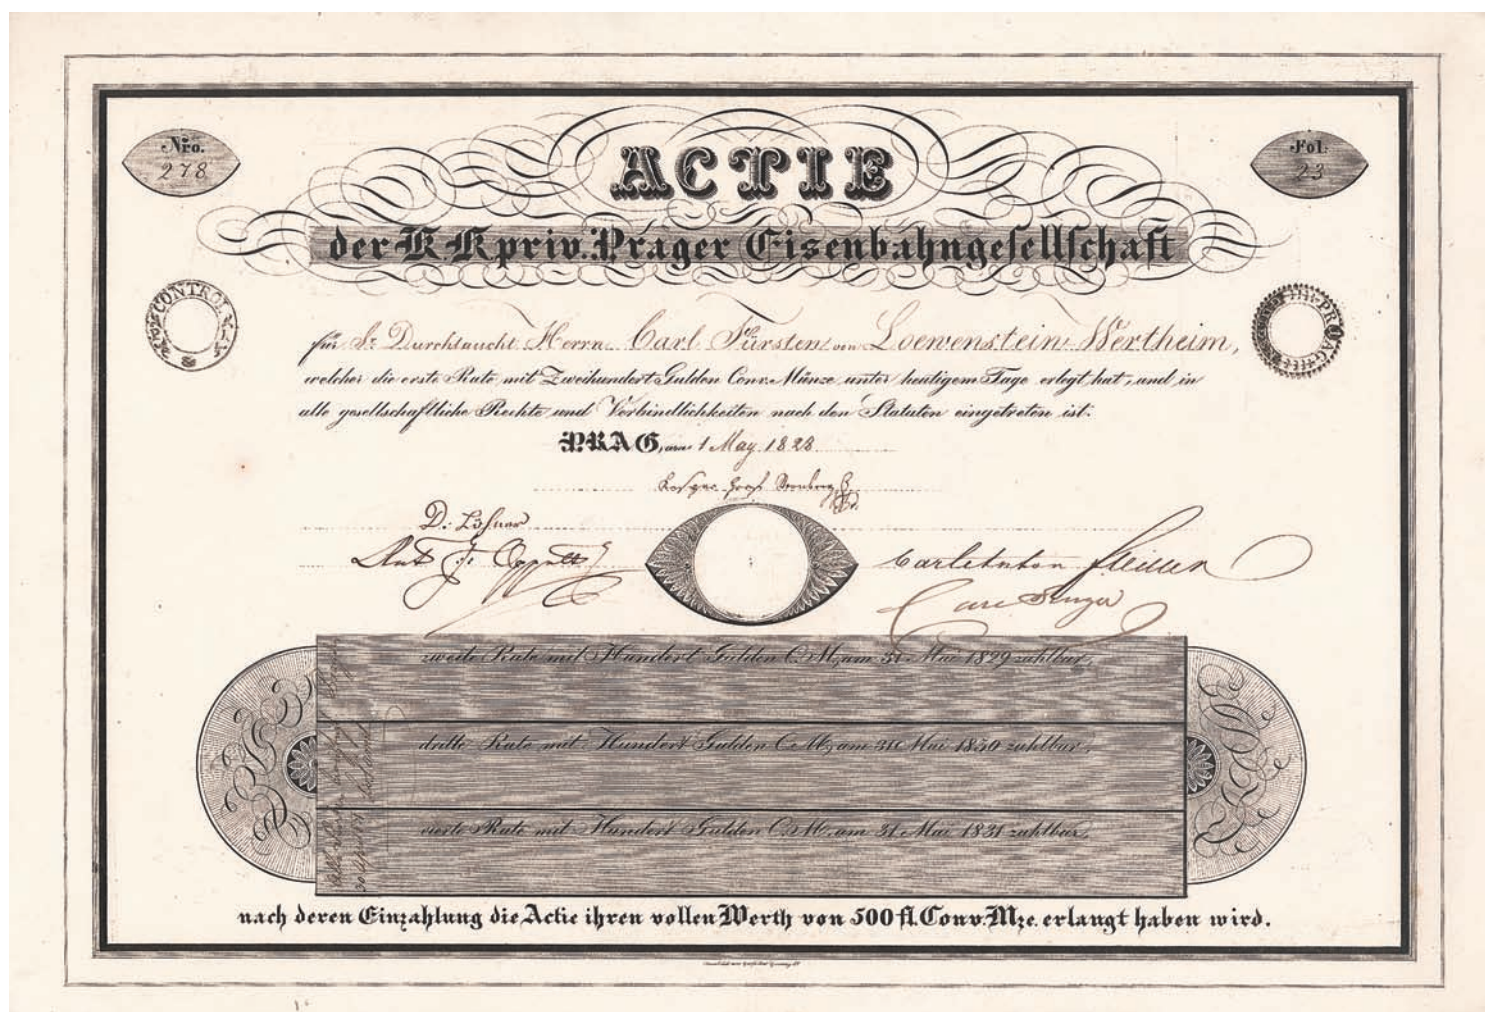 Nro.
278
Fol.
23
ACTIE
der K.K. priv. Prager Eisenbahngesellschaft
CONTROL
PRAG
für Sr Durchlaucht Herrn Carl Fürsten von Loewenstein Wertheim,
welcher die erste Rate mit Zweihundert Gulden Conv. Münze unter heutigem Tage erlegt hat, und in
alle gesellschaftliche Rechte und Verbindlichkeiten nach den Statuten eingetreten ist.
PRAG, am 1 May 1828
Graf Sternberg
Ant
Carl Anton
Carl
zweite Rate mit Hundert Gulden C.M. am 31 Mai 1829 zahlbar,
dritte Rate mit Hundert Gulden C.M. am 31 Mai 1830 zahlbar,
vierte Rate mit Hundert Gulden C.M. am 31 Mai 1831 zahlbar,
nach deren Einzahlung die Actie ihren vollen Werth von 500 fl. Conv. Mze. erlangt haben wird.